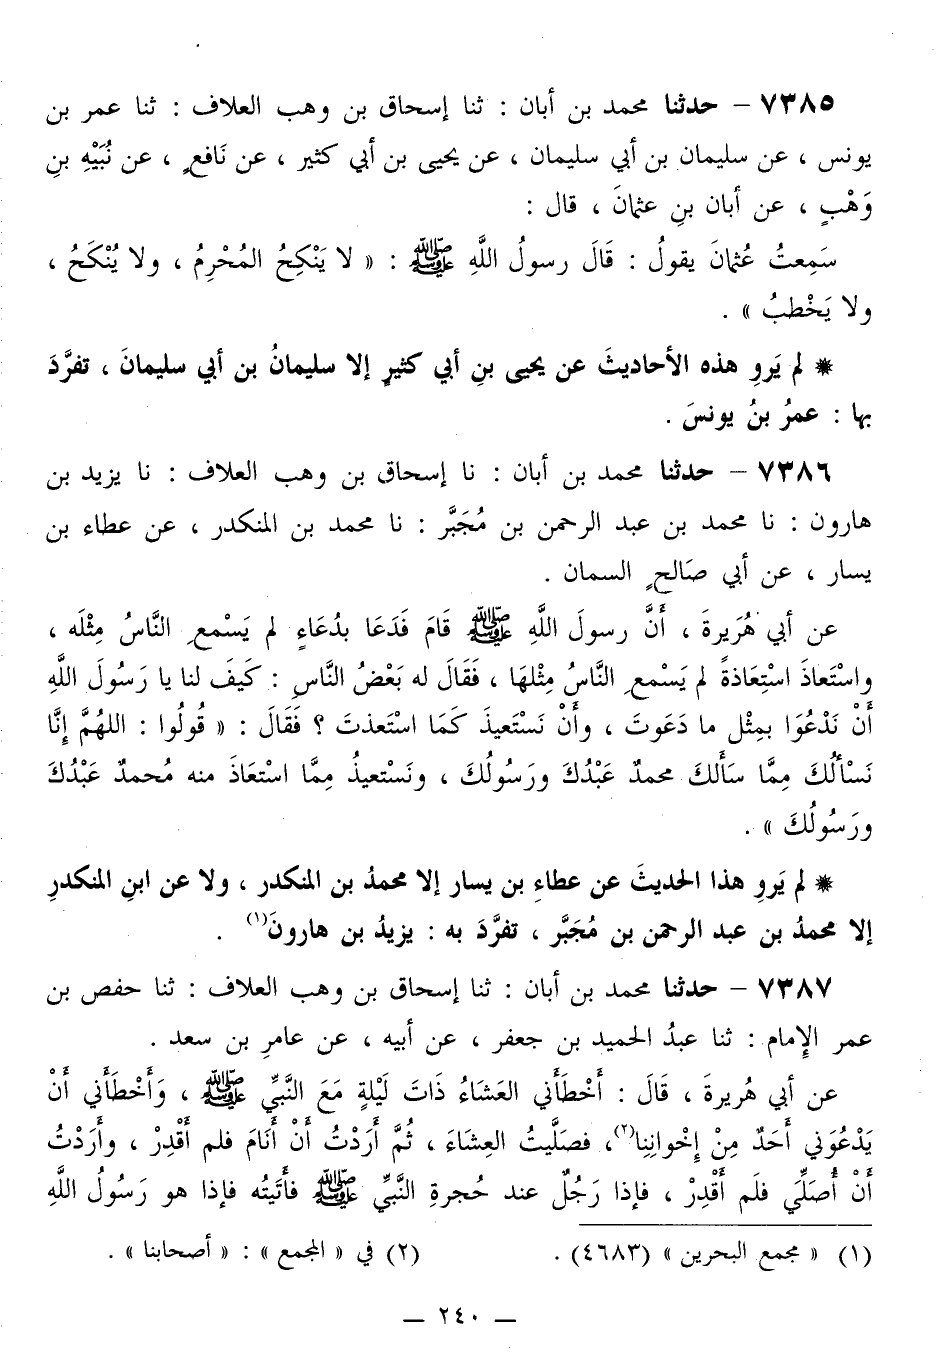 ٧٣٨٥ – حدثنا محمد بن أبان : ثنا إسحاق بن وهب العلاف : ثنا عمر بن
يونس ، عن سليمان بن أبي سليمان ، عن يحيى بن أبي كثير ، عن نَافعٍ ، عن نُبَيْهِ بنِ
وَهْبٍ ، عن أبان بنِ عثمانَ ، قال :
سَمِعتُ عُثمانَ يقولُ : قَالَ رسولُ اللَّهِ ﷺ : « لا يَنْكِحُ المُحْرِمُ ، ولا يُنْكَحُ ،
ولا يَخْطبُ » .
* لم يَروِ هذه الأحاديثَ عن يحيى بنِ أبي كثيرٍ إلا سليمانُ بن أبي سليمانَ ، تفرَّدَ
بها : عمرُ بنُ يونسَ .
٧٣٨٦ – حدثنا محمد بن أبان : نا إسحاق بن وهب العلاف : نا يزيد بن
هارون : نا محمد بن عبد الرحمن بن مُجَبَّر : نا محمد بن المنكدر ، عن عطاء بن
يسار ، عن أبي صَالحٍ السمان .
عن أبي هُرَيرةَ ، أَنَّ رسولَ اللَّهِ ﷺ قَامَ فَدَعَا بدُعَاءٍ لم يَسْمعِ النَّاسُ مِثْلَه ،
واسْتَعاذَ اسْتِعَاذةً لم يَسْمعِ النَّاسُ مِثْلهَا ، فَقَالَ له بَعْضُ النَّاسِ : كَيفَ لنا يا رَسُولَ اللَّهِ
أَنْ نَدْعُوَا بمِثْلِ ما دَعَوتَ ، وأَنْ نَسْتَعيذَ كَمَا اسْتَعذتَ ؟ فَقَالَ : « قُولُوا : اللهُمَّ إِنَّا
نَسْأَلُكَ مِمَّا سَأَلكَ محمدٌ عَبْدُكَ ورَسُولُكَ ، ونَسْتعيذُ مِمَّا اسْتعَاذَ منه مُحمدٌ عَبْدُكَ
ورَسُولُكَ » .
* لم يَروِ هذا الحديثَ عن عطاءِ بن يسار إلا محمدُ بن المنكدر ، ولا عن ابنِ المنكدرِ
إلا محمدُ بن عبد الرحمن بن مُجَبَّر ، تفرَّدَ به : يزيدُ بن هارونَ(١) .
٧٣٨٧ – حدثنا محمد بن أبان : ثنا إسحاق بن وهب العلاف : ثنا حفص بن
عمر الإمام : ثنا عبدُ الحميد بن جعفر ، عن أبيه ، عن عامرِ بن سعد .
عن أبي هُريرةَ ، قَالَ : أَخْطَأَني العَشَاءُ ذَاتَ لَيْلةٍ مَعَ النَّبيِّ ﷺ ، وَأَخْطأَني أَنْ
يَدْعُوَني أَحَدٌ مِنْ إِخْوانِنِا(٢)، فصَلَّيتُ العِشَاءَ ، ثُمَّ أَرَدْتُ أَنْ أَنَامَ فلم أَقْدِرْ ، وأَرَدْتُ
أَنْ أُصَلِّي فلَم أَقْدِرْ ، فإذا رَجُلٌ عند حُجرةِ النَّبيِّ ﷺ فأَتَيتُه فإذا هو رَسُولُ اللَّهِ
(١) « مجمع البحرين » (٤٦٨٣) . (٢) في « المجمع » : « أصحابنا » .
– ٢٤٠ –